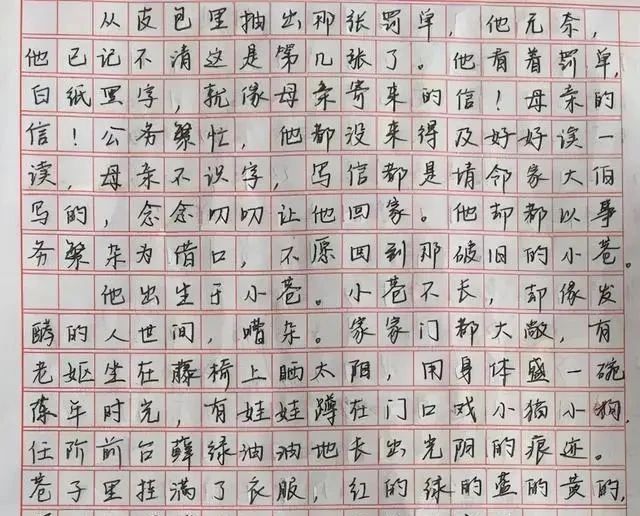 从皮包里抽出那张罚单，他无奈，
他已记不清这是第几张了。他看着罚单，
白纸黑字，就像母亲寄来的信！母亲的
信！公务繁忙，他都没来得及好好读一
读，母亲不识字，写信都是请邻家大伯
写的，念念叨叨让他回家。他却都以事
务繁杂为借口，不愿回到那破旧的小巷。
他出生于小巷。小巷不长，却像发
酵的人世间，嘈杂。家家门都大敞，有
老妪坐在藤椅上晒太阳，用身体盛一碗
陈年时光，有娃娃蹲在门口戏小猫小狗，
任阶前台藓绿油油地长出光阴的痕迹。
巷子里挂满了衣服，红的绿的蓝的黄的，